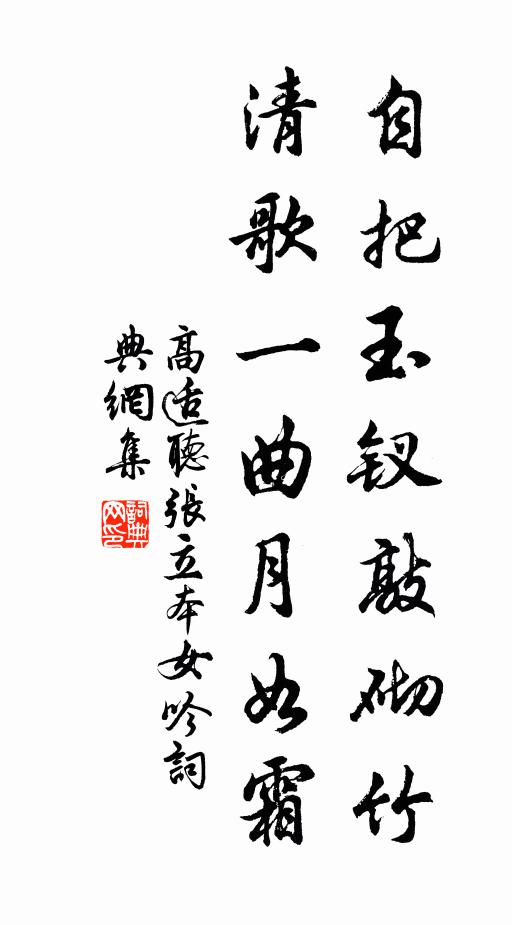 自把玉釵敲砌竹
清歌一曲月如霜
高适聽張立本女吟詞
典網集
詞典网印